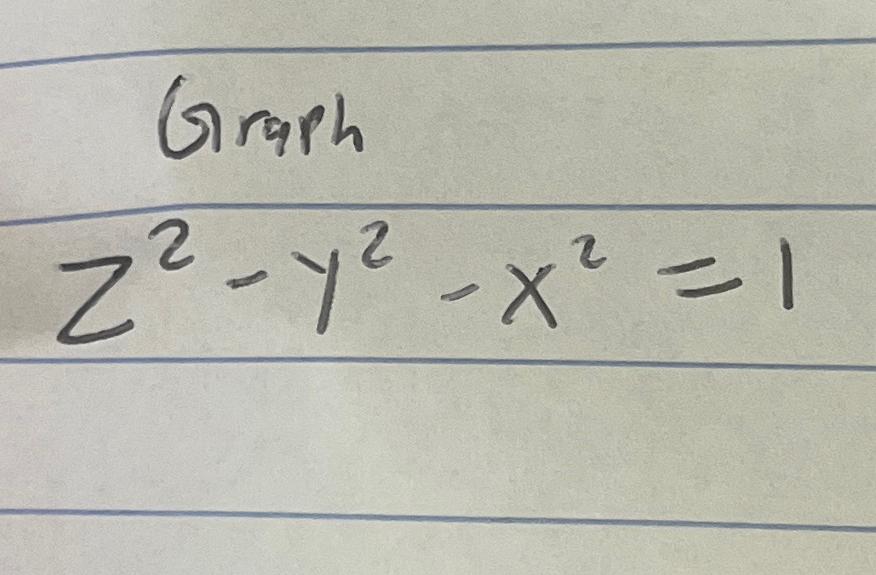 Graph
z² - y² - x² = 1